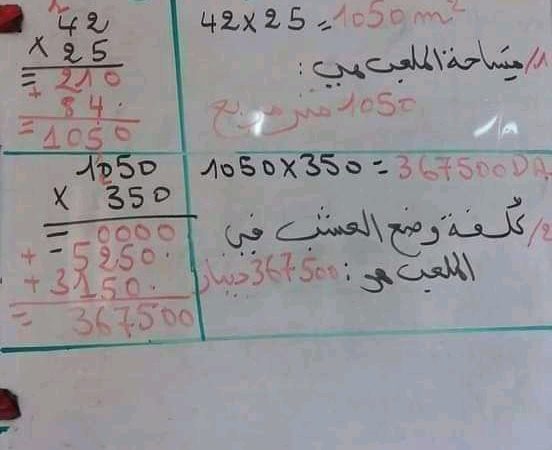 42
× 25
= 210
+ 84.
= 1050
42 × 25 = 1050 m²
1/ مساحة الملعب هي :
1050 متر مربع
1050
× 350
= 0000
+ 5250.
+ 3150.
= 367500
1050 × 350 = 367500 DA
2/ تكلفة وضع العشب في
الملعب هو : 367500 دينار